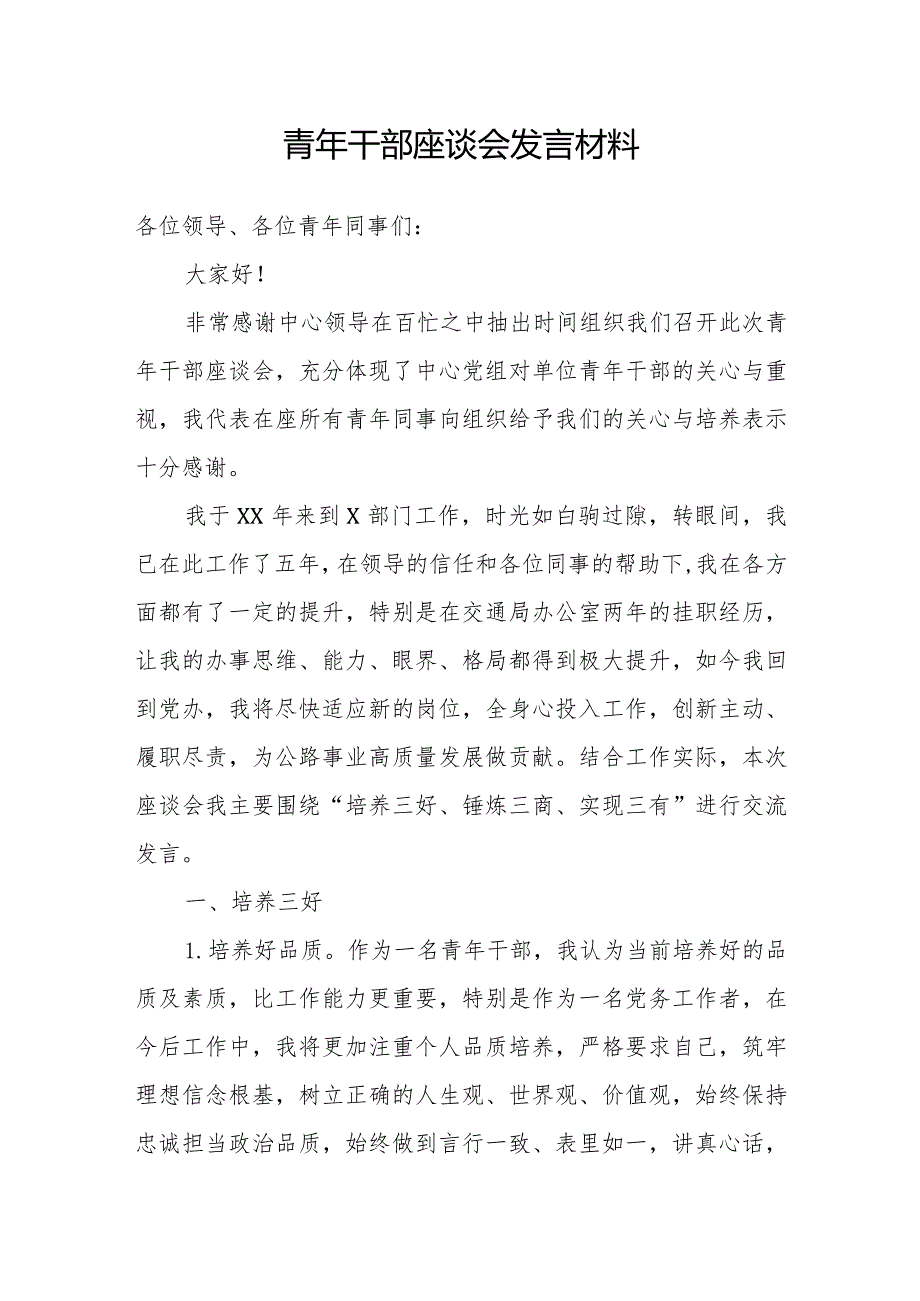 青年干部座谈会发言材料
各位领导、各位青年同事们：
大家好！
非常感谢中心领导在百忙之中抽出时间组织我们召开此次青
年干部座谈会，充分体现了中心党组对单位青年干部的关心与重
视，我代表在座所有青年同事向组织给予我们的关心与培养表示
十分感谢。
我于 XX 年来到 X 部门工作，时光如白驹过隙，转眼间，我
已在此工作了五年,在领导的信任和各位同事的帮助下,我在各方
面都有了一定的提升，特别是在交通局办公室两年的挂职经历，
让我的办事思维、能力、眼界、格局都得到极大提升，如今我回
到党办，我将尽快适应新的岗位，全身心投入工作，创新主动、
履职尽责，为公路事业高质量发展做贡献。结合工作实际，本次
座谈会我主要围绕“培养三好、锤炼三商、实现三有”进行交流
发言。
一、培养三好
1.培养好品质。作为一名青年干部，我认为当前培养好的品
质及素质，比工作能力更重要，特别是作为一名党务工作者，在
今后工作中，我将更加注重个人品质培养，严格要求自己，筑牢
理想信念根基，树立正确的人生观、世界观、价值观，始终保持
忠诚担当政治品质，始终做到言行一致、表里如一，讲真心话，